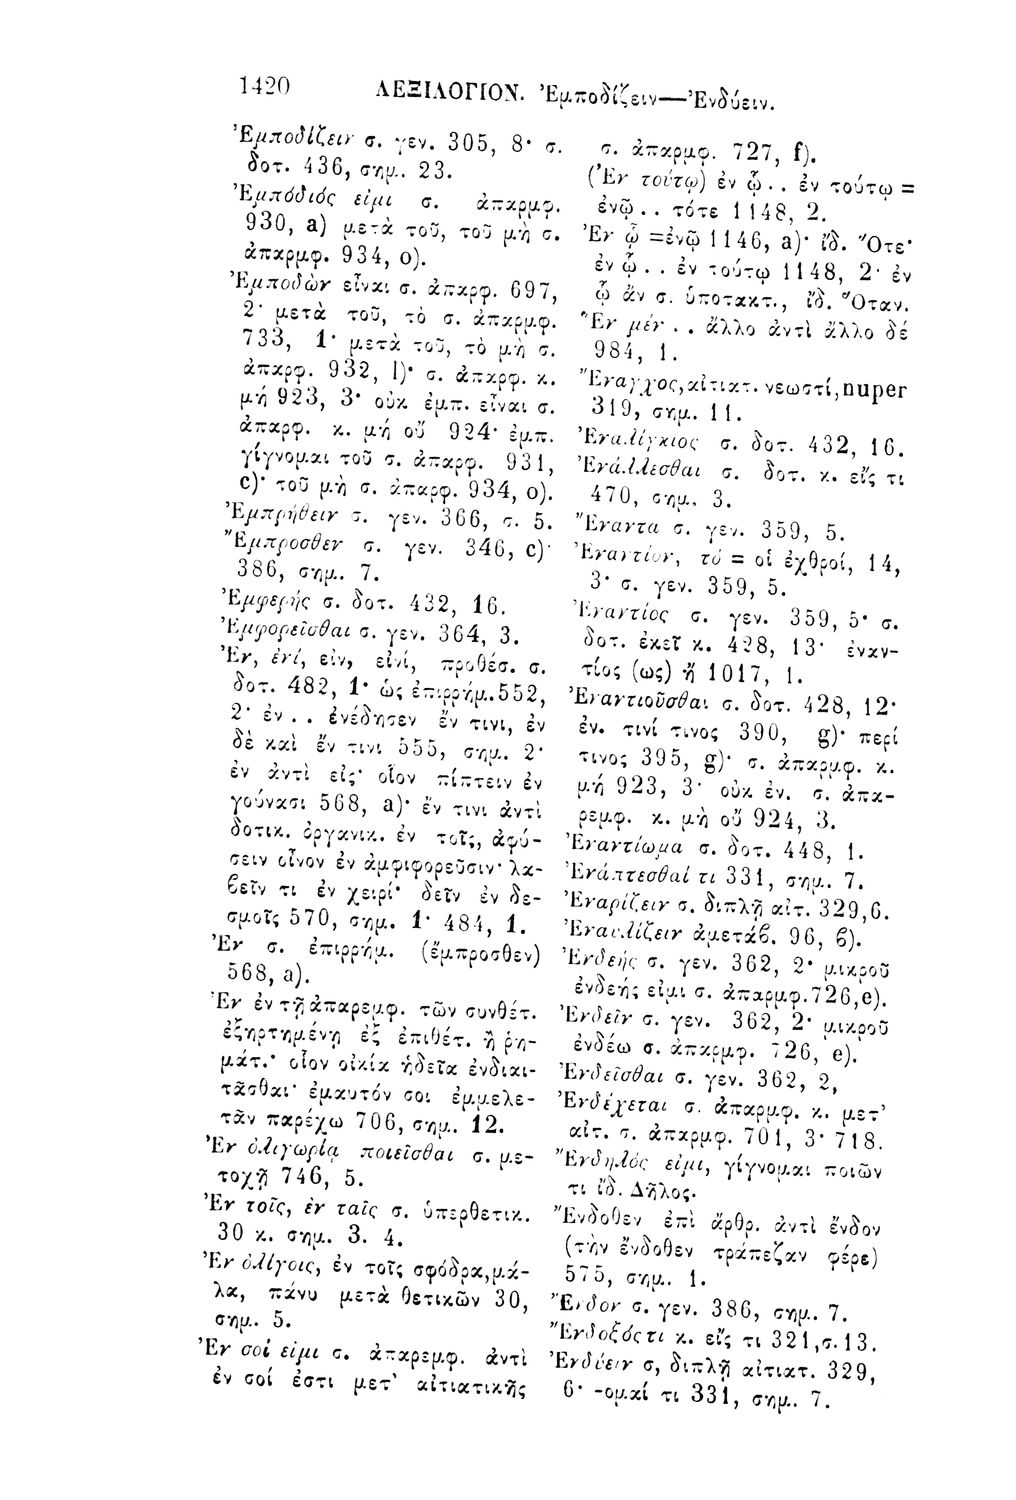 1420 ΛΕΞΙΛΟΓΙΟΝ. Ἐμποδίζειν—Ἐνδύειν.
Ἐμποδίζειν σ. γεν. 305, 8· σ.
δοτ. 436, σημ. 23.
Ἐμπόδιός εἰμι σ. ἀπαρμφ.
930, a) μετὰ τοῦ, τοῦ μὴ σ.
ἀπαρμφ. 934, ο).
Ἐμποδὼν εἶναι σ. ἀπαρφ. 697,
2· μετὰ τοῦ, τὸ σ. ἀπαρμφ.
733, 1· μετὰ τοῦ, τὸ μὴ σ.
ἀπαρφ. 932, l)· σ. ἀπαρφ. κ.
μή 923, 3· οὐκ ἐμπ. εἶναι σ.
ἀπαρφ. κ. μή οὐ 924· ἐμπ.
γίγνομαι τοῦ σ. ἀπαρφ. 931,
c)· τοῦ μὴ σ. ἀπαρφ. 934, ο).
Ἐμπρήθειν σ. γεν. 366, σ. 5.
Ἔμπροσθεν σ. γεν. 346, c)·
386, σημ. 7.
Ἐμφερής σ. δοτ. 432, 16.
Ἐμφορεῖσθαι σ. γεν. 364, 3.
Ἐν, ἐνί, εἰν, εἰνί, προθέσ. σ.
δοτ. 482, 1· ὡς ἐπιρρήμ. 552,
2· ἐν . . ἐνέδησεν ἔν τινι, ἐν
δὲ καὶ ἔν τινι 555, σημ. 2·
ἐν ἀντὶ εἰς· οἷον πίπτειν ἐν
γούνασι 568, a)· ἔν τινι ἀντὶ
δοτικ. ὀργανικ. ἐν τοῖς, ἀφύ-
σειν οἶνον ἐν ἀμφιφορεῦσιν· λα-
βεῖν τι ἐν χειρί· δεῖν ἐν δε-
σμοῖς 570, σημ. 1· 484, 1.
Ἐν σ. ἐπιρρήμ. (ἔμπροσθεν)
568, a).
Ἐν ἐν τῇ ἀπαρεμφ. τῶν συνθέτ.
ἐξηρτημένῃ ἐξ ἐπιθέτ. ἢ ῥη-
μάτ.· οἷον οἰκία ἡδεῖα ἐνδιαι-
τᾶσθαι· ἐμαυτόν σοι ἐμμελε-
τᾶν παρέχω 706, σημ. 12.
Ἐν ὀλιγωρίᾳ ποιεῖσθαι σ. με-
τοχῇ 746, 5.
Ἐν τοῖς, ἐν ταῖς σ. ὑπερθετικ.
30 κ. σημ. 3. 4.
Ἐν ὀλίγοις, ἐν τοῖς σφόδρα, μά-
λα, πάνυ μετὰ θετικῶν 30,
σημ. 5.
Ἐν σοί εἰμι σ. ἀπαρεμφ. ἀντὶ
ἐν σοί ἐστι μετ’ αἰτιατικῆς
σ. ἀπαρμφ. 727, f).
(Ἐν τούτῳ) ἐν ᾧ . . ἐν τούτῳ =
ἐνῷ . . τότε 1148, 2.
Ἐν ᾧ = ἐνῷ 1146, a)· ἴδ. Ὅτε·
ἐν ᾧ . . ἐν τούτῳ 1148, 2· ἐν
ᾧ ἂν σ. ὑποτακτ., ἴδ. Ὅταν.
Ἓν μέν . . ἄλλο ἀντὶ ἄλλο δέ
984, 1.
Ἔναγχος, αἰτιατ. νεωστί, nuper
319, σημ. 11.
Ἐναλίγκιος σ. δοτ. 432, 16.
Ἐνάλλεσθαι σ. δοτ. κ. εἴς τι
470, σημ. 3.
Ἔναντα σ. γεν. 359, 5.
Ἐναντίον, τό = οἱ ἐχθροί, 14,
3· σ. γεν. 359, 5.
Ἐναντίος σ. γεν. 359, 5· σ.
δοτ. ἐκεῖ κ. 428, 13· ἐναν-
τίος (ως) ἤ 1017, 1.
Ἐναντιοῦσθαι σ. δοτ. 428, 12·
ἐν. τινί τινος 390, g)· περί
τινος 395, g)· σ. ἀπαρμφ. κ.
μή 923, 3· οὐκ ἐν. σ. ἀπα-
ρεμφ. κ. μὴ οὐ 924, 3.
Ἐναντίωμα σ. δοτ. 448, 1.
Ἐνάπτεσθαί τι 331, σημ. 7.
Ἐναρίζειν σ. διπλῇ αἰτ. 329,6.
Ἐναυλίζειν ἀμετάβ. 96, β).
Ἐνδεής σ. γεν. 362, 2· μικροῦ
ἐνδεής εἰμι σ. ἀπαρμφ. 726, e).
Ἐνδεῖν σ. γεν. 362, 2· μικροῦ
ἐνδέω σ. ἀπαρμφ. 726, e).
Ἐνδεῖσθαι σ. γεν. 362, 2,
Ἐνδέχεται σ. ἀπαρμφ. κ. μετ’
αἰτ. σ. ἀπαρμφ. 701, 3· 718.
Ἔνδηλός εἰμι, γίγνομαι ποιῶν
τι ἴδ. Δῆλος.
Ἔνδοθεν ἐπὶ ἄρθρ. ἀντὶ ἔνδον
(τὴν ἔνδοθεν τράπεζαν φέρε)
575, σημ. 1.
Ἔνδον σ. γεν. 386, σημ. 7.
Ἔνδοξός τι κ. εἴς τι 321, σ. 13.
Ἐνδύειν σ, διπλῇ αἰτιατ. 329,
6· -ομαί τι 331, σημ. 7.